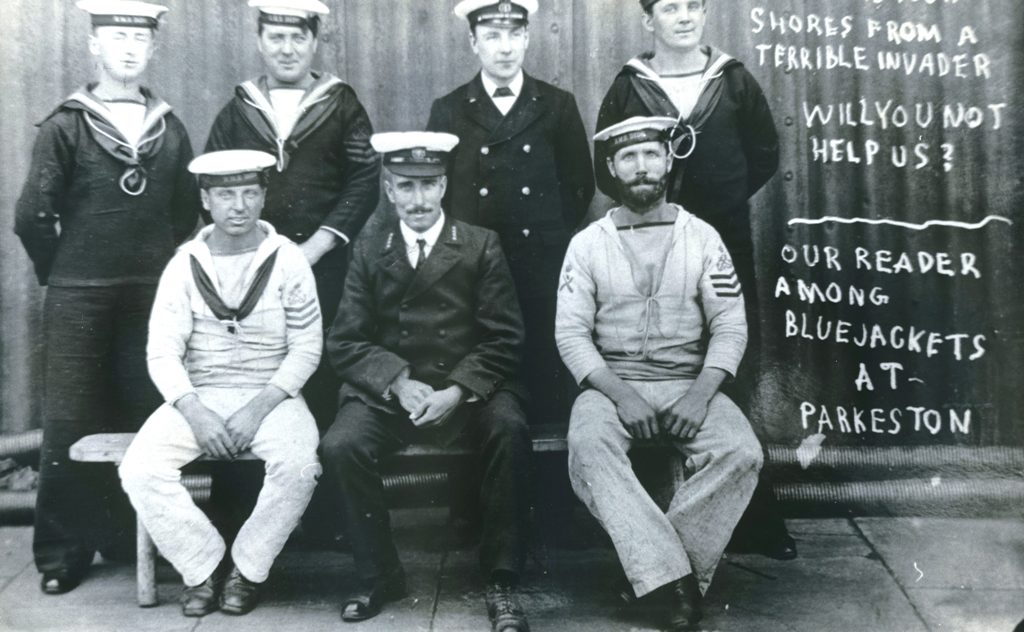 SHORES FROM A
TERRIBLE INVADER
WILL YOU NOT
HELP US?
OUR READER
AMONG
BLUEJACKETS
AT-
PARKESTON